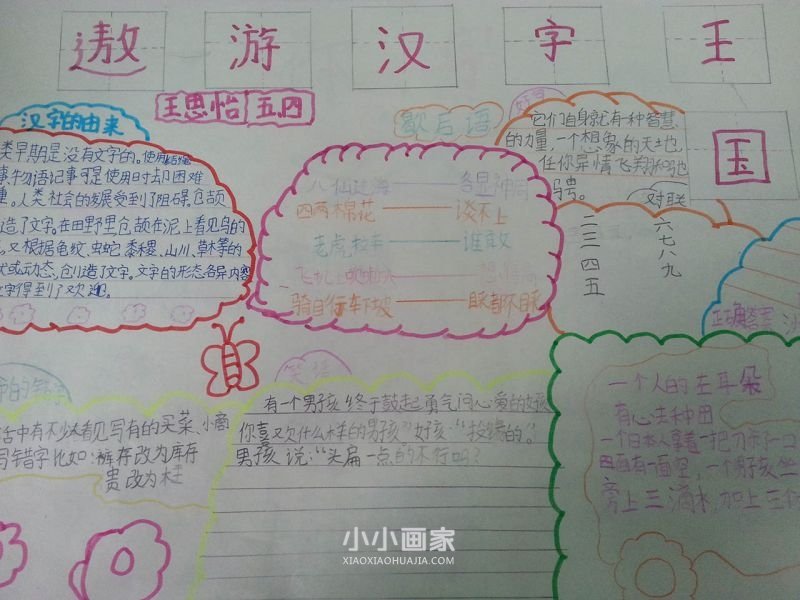 遨游汉字王国
王思怡 五.四
汉字的由来
类早期是没有文字的。使用结绳
事、物语记事可是使用时却困难
重。人类社会的发展受到了阻碍。仓颉
造了文字。在田野里仓颉在泥上看见鸟的
又根据龟蚊、虫蛇、黍稷、山川、草木等的
状或动态,创造了文字。文字的形态各异内容
字得到了欢迎。
歇后语
八仙过海——各显神通
四两棉花——谈不上
老虎拉车——谁敢
骑自行车下坡——睬都不睬
好字
它们自身就有一种智慧
的力量,一个想象的天地,
任你异情飞翔和驰
骋。
对联
二三四五
六七八九
正确答案
活中有不少看见写有的买菜、小商
写错字比如:裤存改为库存
贵改为柱
笑话
有一个男孩终于鼓起勇气问心爱的女孩
你喜欢什么样的男孩”女孩:“投缘的。”
男孩说:“头扁一点的不行吗?
一个人的左耳朵
有心去种田
一个日本人拿着一把刀杀了一口
四面有一面空,一个男孩坐
旁上三滴水,加上三
小小画家
XIAOXIAOHUAJIA.COM